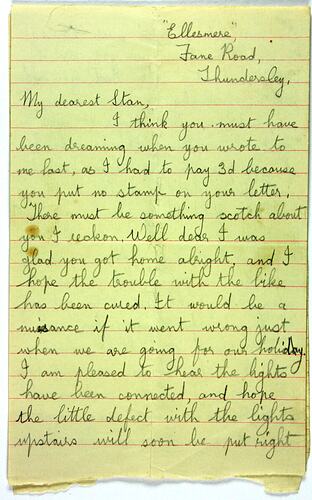 "Ellesmere",
Fane Road,
Thundersley,
My dearest Stan,
I think you must have
been dreaming when you wrote to
me last, as I had to pay 3d because
you put no stamp on your letter.
There must be something scotch about
you I reckon. Well dear I was
glad you got home alright, and I
hope the trouble with the bike
has been cured. It would be a
nuisance if it went wrong just
when we are going for our holiday.
I am pleased to hear the lights
have been connected, and hope
the little defect with the lights
upstairs will soon be put right